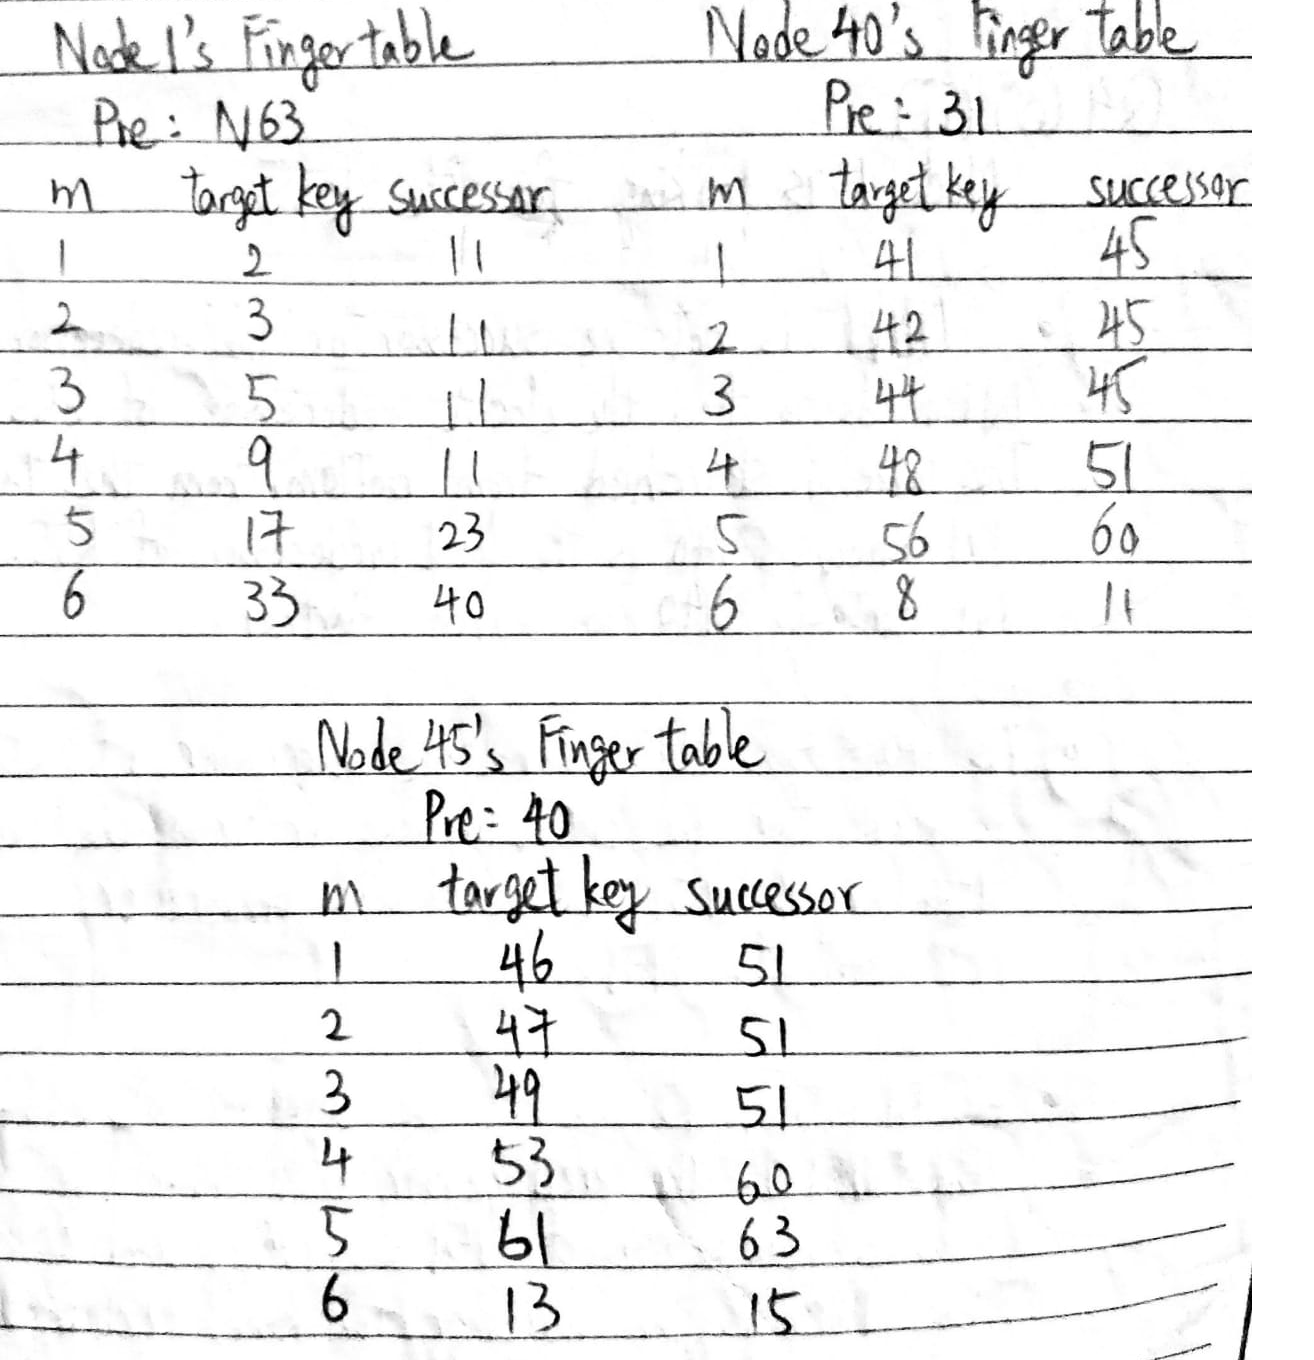 Node 1's Finger table
Pre: N63
m target key successor
1 2 11
2 3 11
3 5 11
4 9 11
5 17 23
6 33 40
Node 40's Finger table
Pre: 31
m target key successor
1 41 45
2 42 45
3 44 45
4 48 51
5 56 60
6 8 11
Node 45's Finger table
Pre: 40
m target key successor
1 46 51
2 47 51
3 49 51
4 53 60
5 61 63
6 13 15